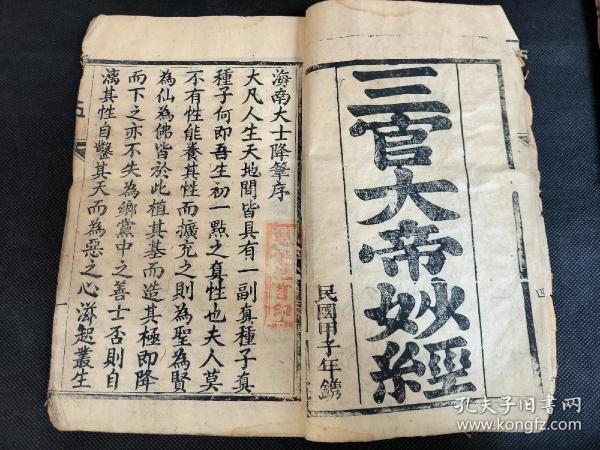 三官大帝妙經
民國甲子年鐫
海南大士降筆序
大凡人生天地間皆具有一副真種子真
種子何即吾生初一點之真性也夫人莫
不有性能養其性而擴充之則為聖為賢
為仙為佛皆於此植其基而造其極即降
而下之亦不失為鄉黨中之善士否則自
漓其性自鑿其天而為惡之心滋起叢生
四
孔夫子旧书网
www.kongfz.com